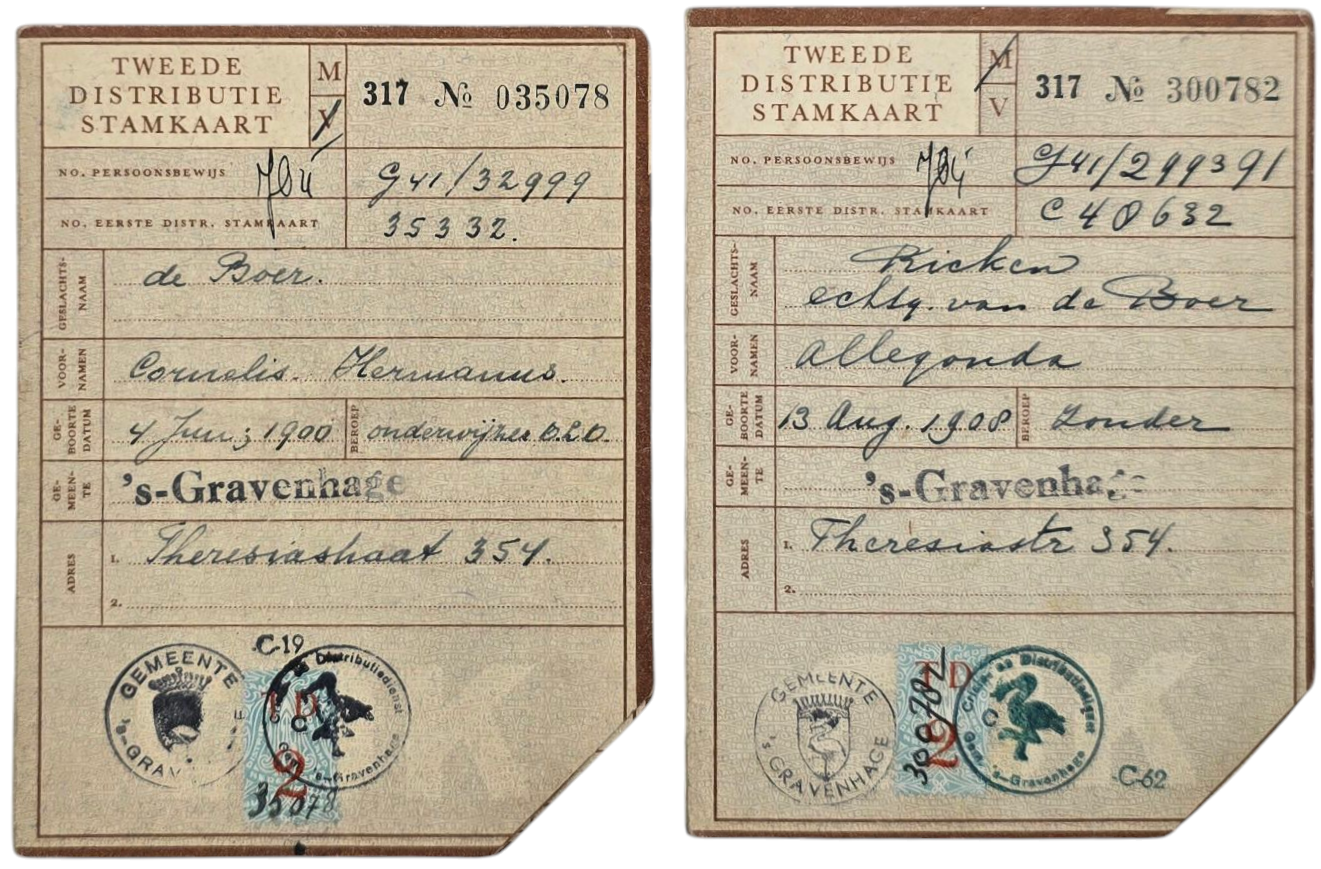 TWEEDE
DISTRIBUTIE
STAMKAART
M
V
317 No 035078
NO. PERSOONSBEWIJS
G41/32999
NO. EERSTE DISTR. STAMKAART
35332.
GESLACHTS-
NAAM
de Boer.
VOOR-
NAMEN
Cornelis. Hermanus.
GE-
BOORTE
DATUM
4 Juni 1900
BEROEP
onderwijzer B.L.O.
GE-
MEEN-
TE
's-Gravenhage
ADRES
1. Theresiastraat 354.
2.
C-19
GEMEENTE
's-GRAV
Distributiedienst
's-Gravenhage
TD
2
35078
TWEEDE
DISTRIBUTIE
STAMKAART
M
V
317 No 300782
NO. PERSOONSBEWIJS
G41/299391
NO. EERSTE DISTR. STAMKAART
C 40632
GESLACHTS-
NAAM
Ricken
echtg. van de Boer
VOOR-
NAMEN
Allegonda
GE-
BOORTE
DATUM
13 Aug. 1908
BEROEP
Zonder
GE-
MEEN-
TE
's-Gravenhage
ADRES
1. Theresiastr 354.
2.
GEMEENTE
's GRAVENHAGE
TD
2
300782
Distributiedienst
's-Gravenhage
C-62